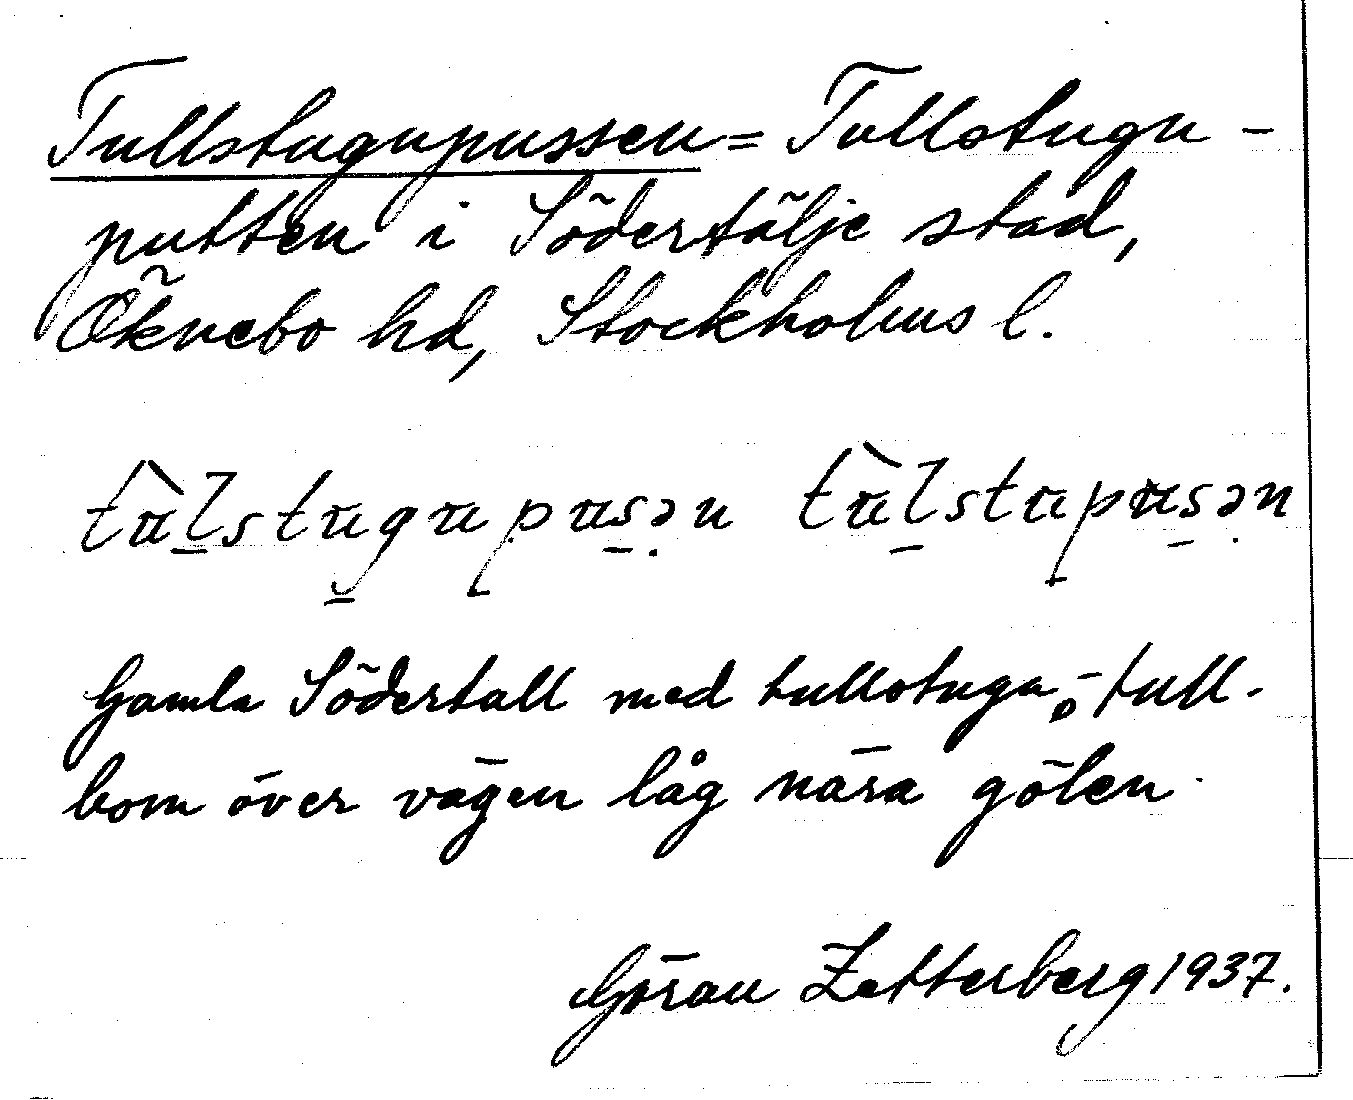 Tullstugupussen = Tullstugu-
putten i Södertälje stad,
Öknebo hd, Stockholms l.
tùlstugupusən tùlstupusən
Gamla Södertull med tullstuga o. tull-
bom över vägen låg nära gölen.
Göran Zetterberg 1937.